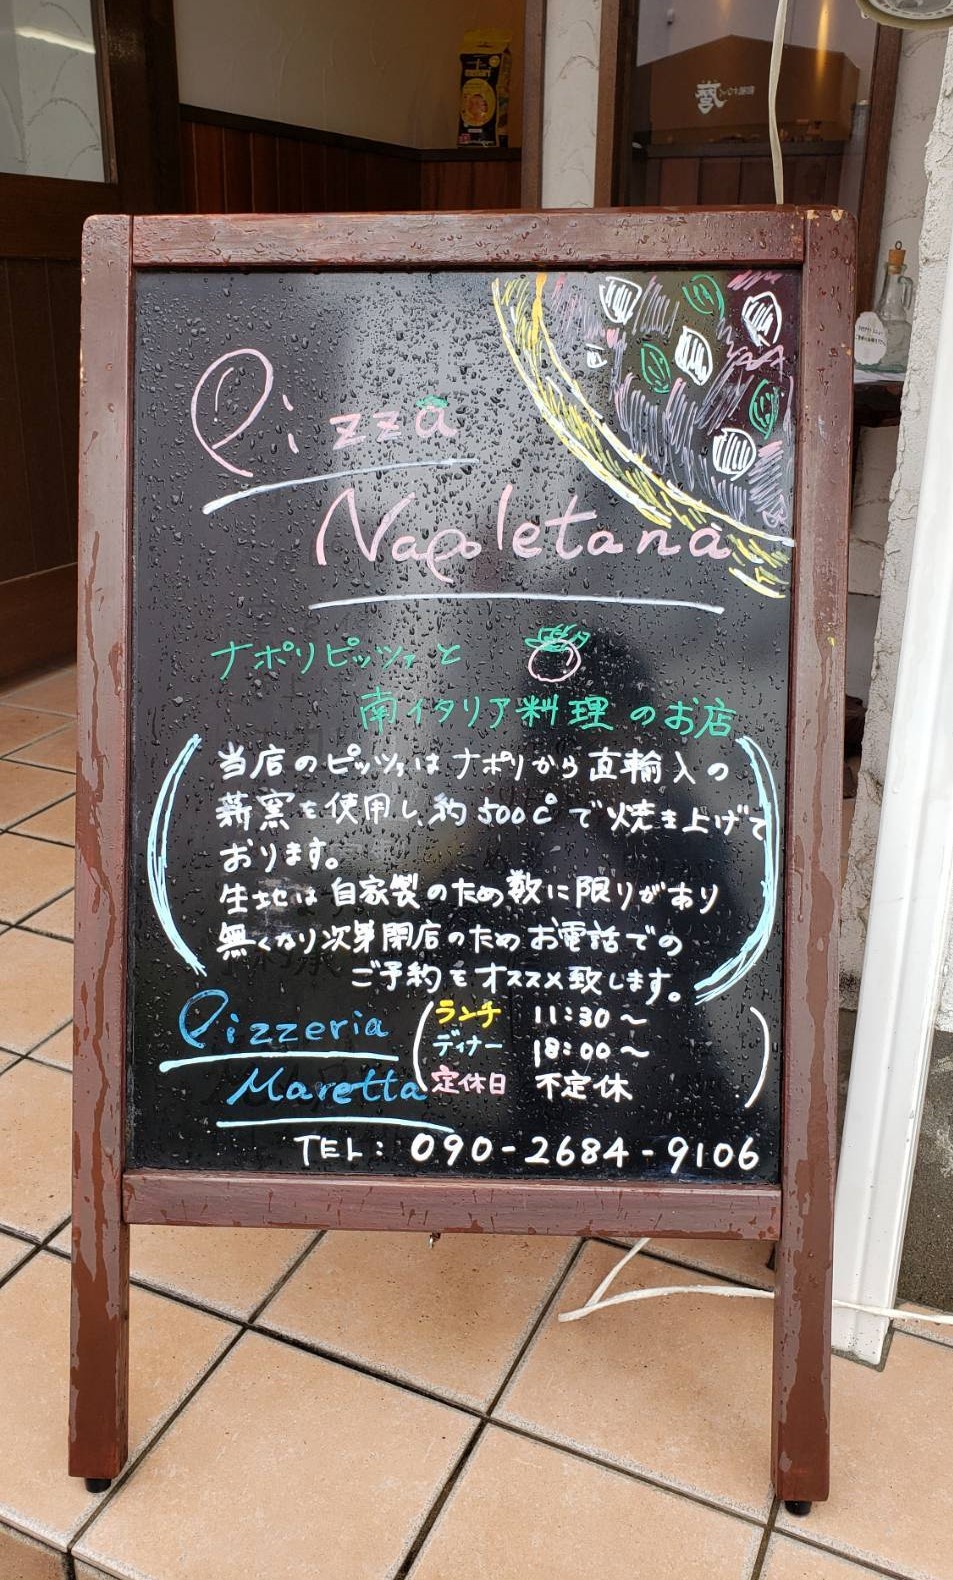 Pizza
Napoletana
ナポリピッツァと
南イタリア料理のお店
当店のピッツァはナポリから直輸入の
薪窯を使用し、約500℃で焼き上げて
おります。
生地は自家製のため数に限りがあり
無くなり次第閉店のためお電話での
ご予約をオススメ致します。
Pizzeria
Maretta
ランチ 11:30～
ディナー 18:00～
定休日 不定休
TEL: 090-2684-9106